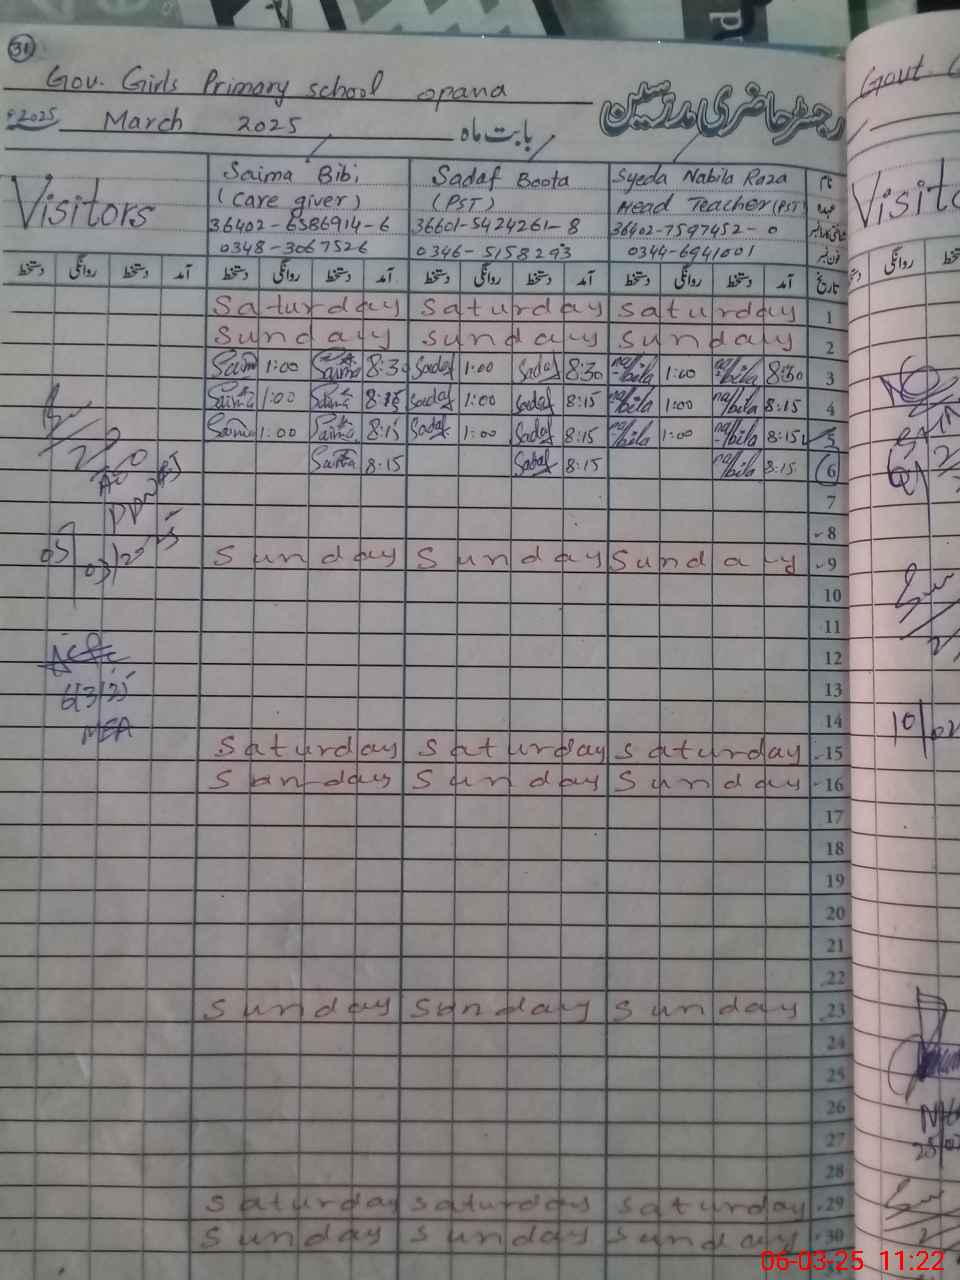 31
Gov. Girls Primary school opana
رجسٹر حاضری مدرسین
2025 March 2025 بابت ماہ
Visitors
Saima Bibi Sadaf Boota Syeda Nabila Raza نام
(Care giver) (PST) Head Teacher (PST) عہدہ
36402-6586914-6 36601-5424261-8 36402-7597452-0
0348-3067526 0346-5158293 0344-6941001 فون نمبر
دستخط روانگی دستخط آمد دستخط روانگی دستخط آمد دستخط روانگی دستخط آمد دستخط روانگی دستخط آمد تاریخ
Saturday Saturday Saturday 1
Sunday Sunday Sunday 2
Saima 1:00 Saima 8:30 Sadaf 1:00 Sadaf 8:30 nabila 1:00 nabila 8:30 3
Saima 1:00 Saima 8:15 Sadaf 1:00 Sadaf 8:15 nabila 1:00 nabila 8:15 4
Saima 1:00 Saima 8:15 Sadaf 1:00 Sadaf 8:15 nabila 1:00 nabila 8:15 5
Saima 8:15 Sadaf 8:15 nabila 8:15 6
7
8
Sunday Sunday Sunday 9
10
11
12
13
14
Saturday Saturday Saturday 15
Sunday Sunday Sunday 16
17
18
19
20
21
22
Sunday Sunday Sunday 23
24
25
26
27
28
Saturday Saturday Saturday 29
Sunday Sunday Sunday 30
05/03/2025
6/3/25
MEA
Govt
Visito
روانگی
06-03-25 11:22